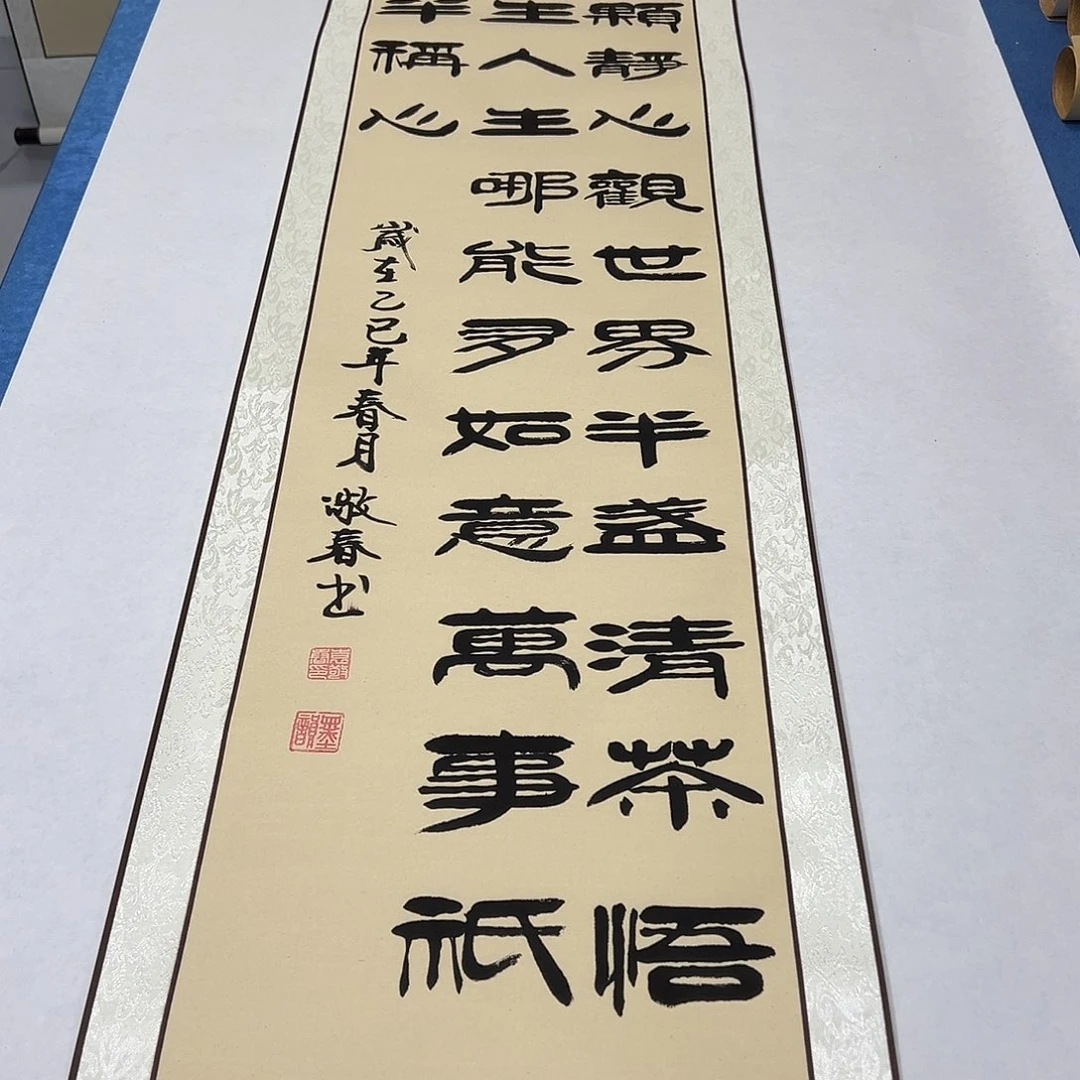 顆靜心觀世界半盞清茶悟
生人生哪能多如意萬事祇
半稱心
歲在乙巳年春月敬春书